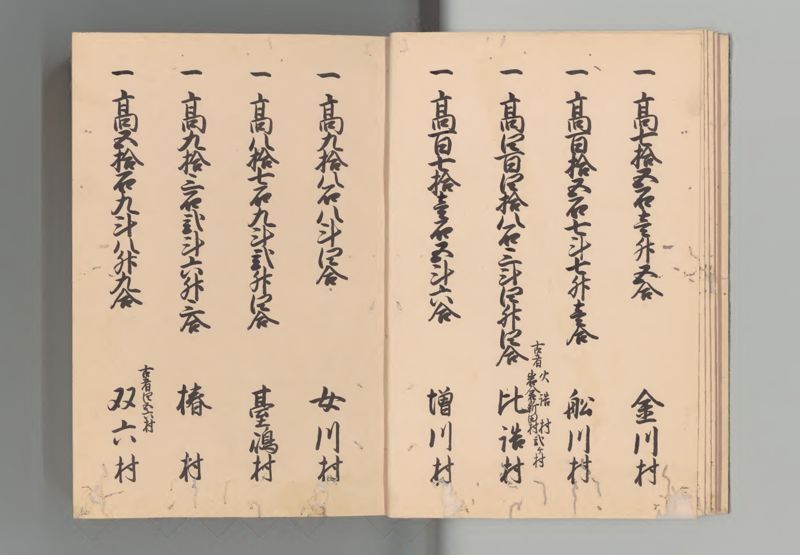 一 高七拾五石壱升五合 金川村
一 高百拾五石七斗七升壱合 船川村
古者 火詰村 岩倉新田村 弐ケ村
一 高四百四拾八石三斗四升四合 比詰村
一 高百七拾壱石五斗六合 増川村
一 高九拾八石八斗四合 女川村
一 高八拾七石九斗弐升四合 臺嶋村
一 高九拾三石弐斗六升三合 椿村
古者四五六村
一 高五拾石九斗八升九合 双六村